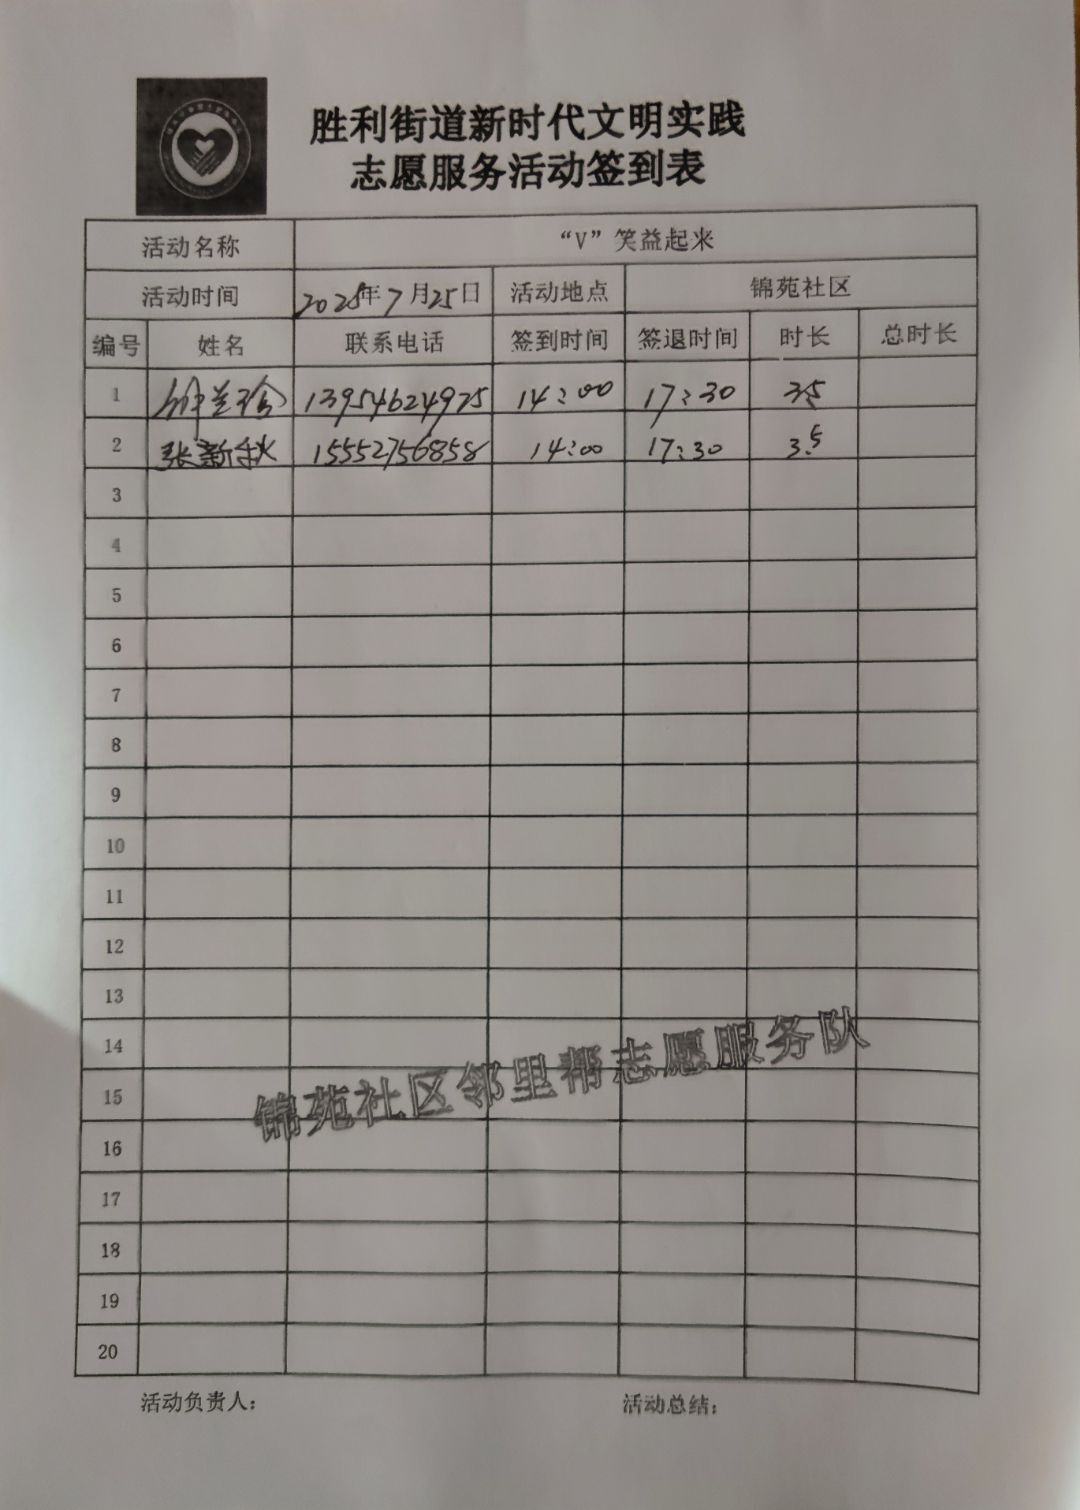 胜利街道新时代文明实践
志愿服务活动签到表
活动名称 “V”笑益起来
活动时间 2025年7月25日 活动地点 锦苑社区
编号 姓名 联系电话 签到时间 签退时间 时长 总时长
1 钟兰玲 13954624975 14:00 17:30 3.5
2 张新秋 15552756858 14:00 17:30 3.5
3
4
5
6
7
8
9
10
11
12
13
14
锦苑社区邻里帮志愿服务队
15
16
17
18
19
20
活动负责人: 活动总结: